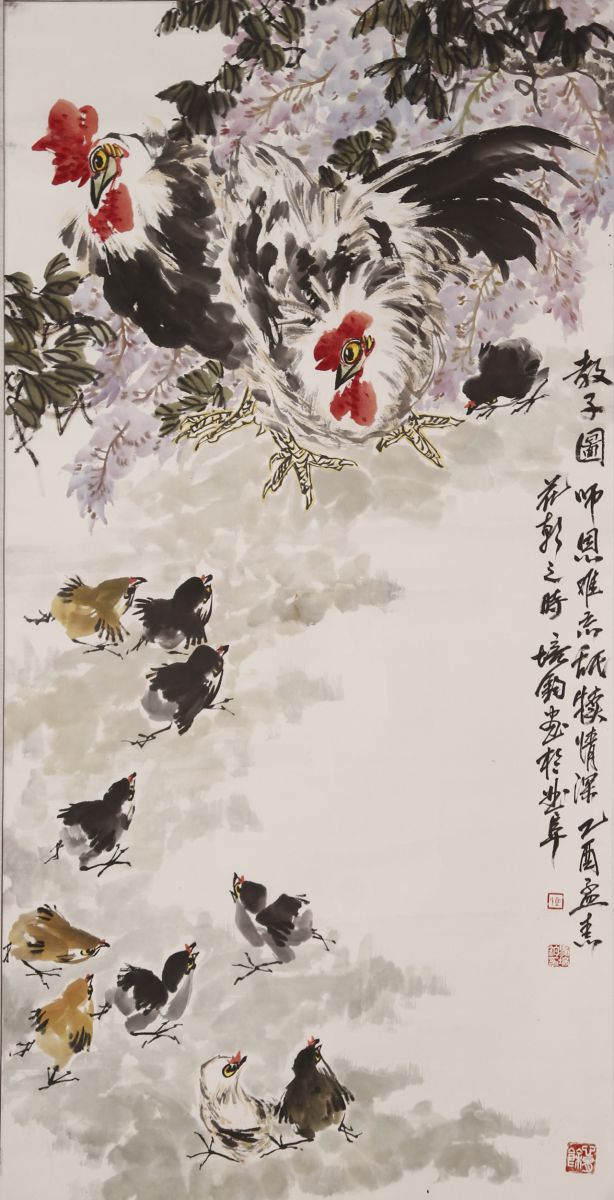 教子圖 师恩难忘 舐犊情深 乙酉孟春
花朝之时 培钧画於曲阜